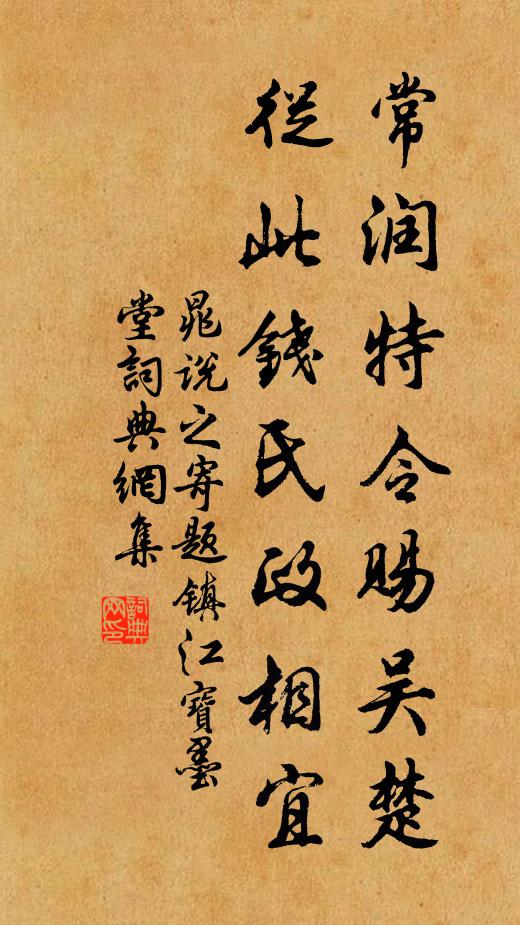 常润特令赐吴楚
從此錢氏政相宜
晁说之寄题镇江寶墨
堂詞典網集
詞典
网印